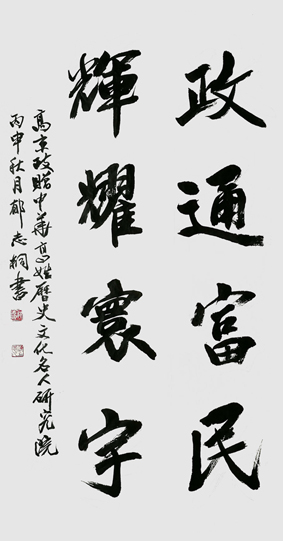 政通富民
輝耀寰宇
高京政贈中華高姓歷史文化名人研究院
丙申秋月郁志桐書